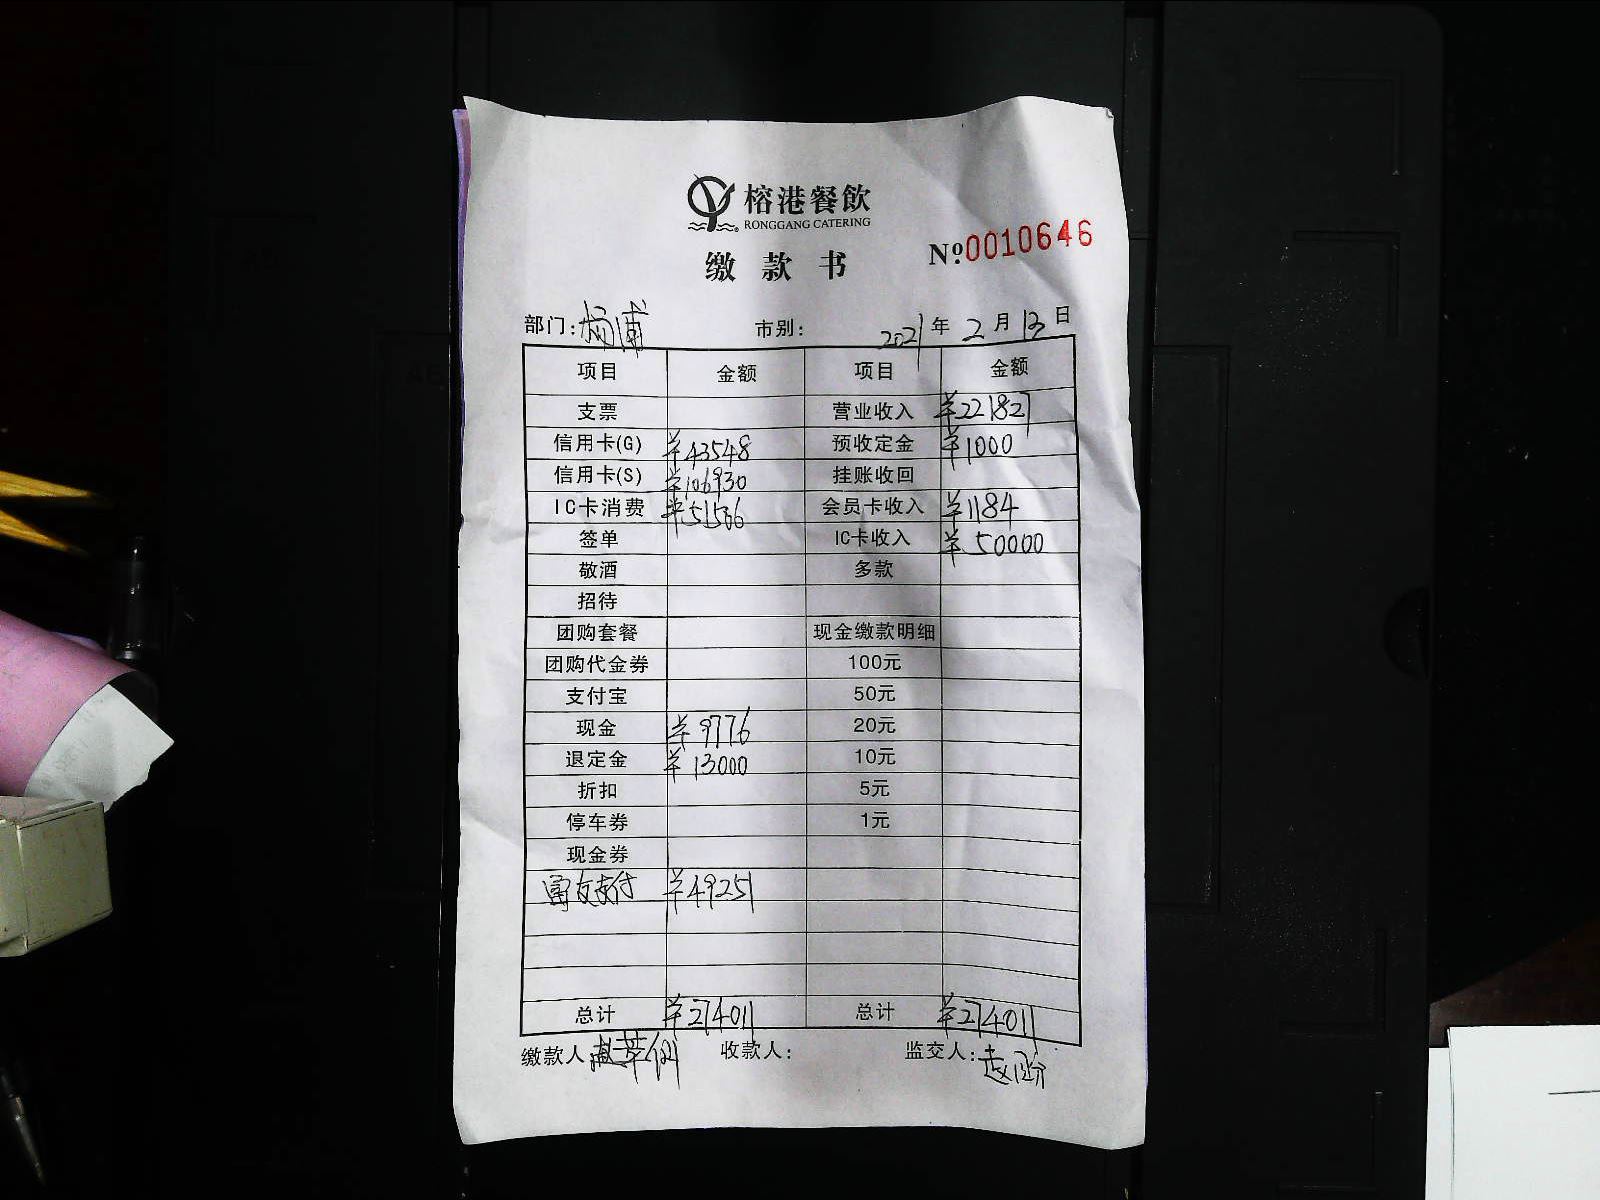 榕港餐飲
RONGGANG CATERING
缴款书
№0010646
部门:杨浦 市别: 2021年2月13日
项目 金额 项目 金额
支票 营业收入 ¥221827
信用卡(G) ¥43548 预收定金 ¥1000
信用卡(S) ¥106930 挂账收回
IC卡消费 ¥51506 会员卡收入 ¥1184
签单 IC卡收入 ¥50000
敬酒 多款
招待
团购套餐 现金缴款明细
团购代金券 100元
支付宝 50元
现金 ¥9776 20元
退定金 ¥13000 10元
折扣 5元
停车券 1元
现金券
富友支付 ¥49251
总计 ¥274011 总计 ¥274011
缴款人 收款人: 监交人: